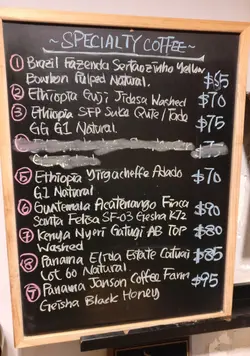 ~SPECIALTY COFFEE~
① Brazil Fazenda Sertaozinho Yellow
Bourbon Pulped Natural. $65
② Ethiopia Guji Jidasa Washed $70
③ Ethiopia SFP Suka Qute/Todo $75
GG G1 Natural
⑤ Ethiopia Yirgacheffe Adado $70
G1 Natural
⑥ Guatemala Acatenango Finca $90
Santa Felisa SF-03 Geisha K72
⑦ Kenya Nyeri Gatugi AB TOP $80
Washed
⑧ Panama Elida Estate Catuai $85
Lot 60 Natural
⑨ Panama Janson Coffee Farm $95
Geisha Black Honey